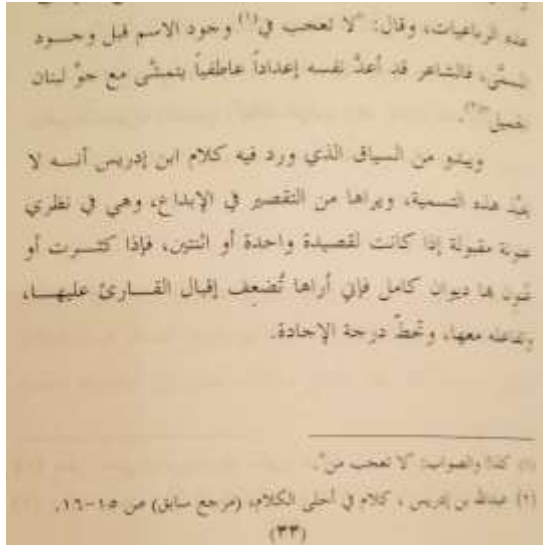 هذه الرباعيات، وقال: "لا تعجب في(١) وجود الاسم قبل وجود
المسمَّى، فالشاعر قد أعدَّ نفسه إعداداً عاطفياً يتمشَّى مع جوِّ لبنان
الجميل"(٢).
ويبدو من السياق الذي ورد فيه كلام ابن إدريس أنه لا
يحبِّذ هذه التسمية، ويراها من التقصير في الإبداع، وهي في نظري
عنونة مقبولة إذا كانت لقصيدة واحدة أو اثنتين، فإذا كثرت أو
عُنون بها ديوان كامل فإني أراها تُضعِف إقبال القارئ عليها،
وتفاعله معها، وتحطّ درجة الإجادة.
(١) كذا! والصواب: "لا تعجب من".
(٢) عبدالله بن إدريس، كلام في أحلى الكلام، (مرجع سابق) ص ١٥-١٦.
(٣٣)